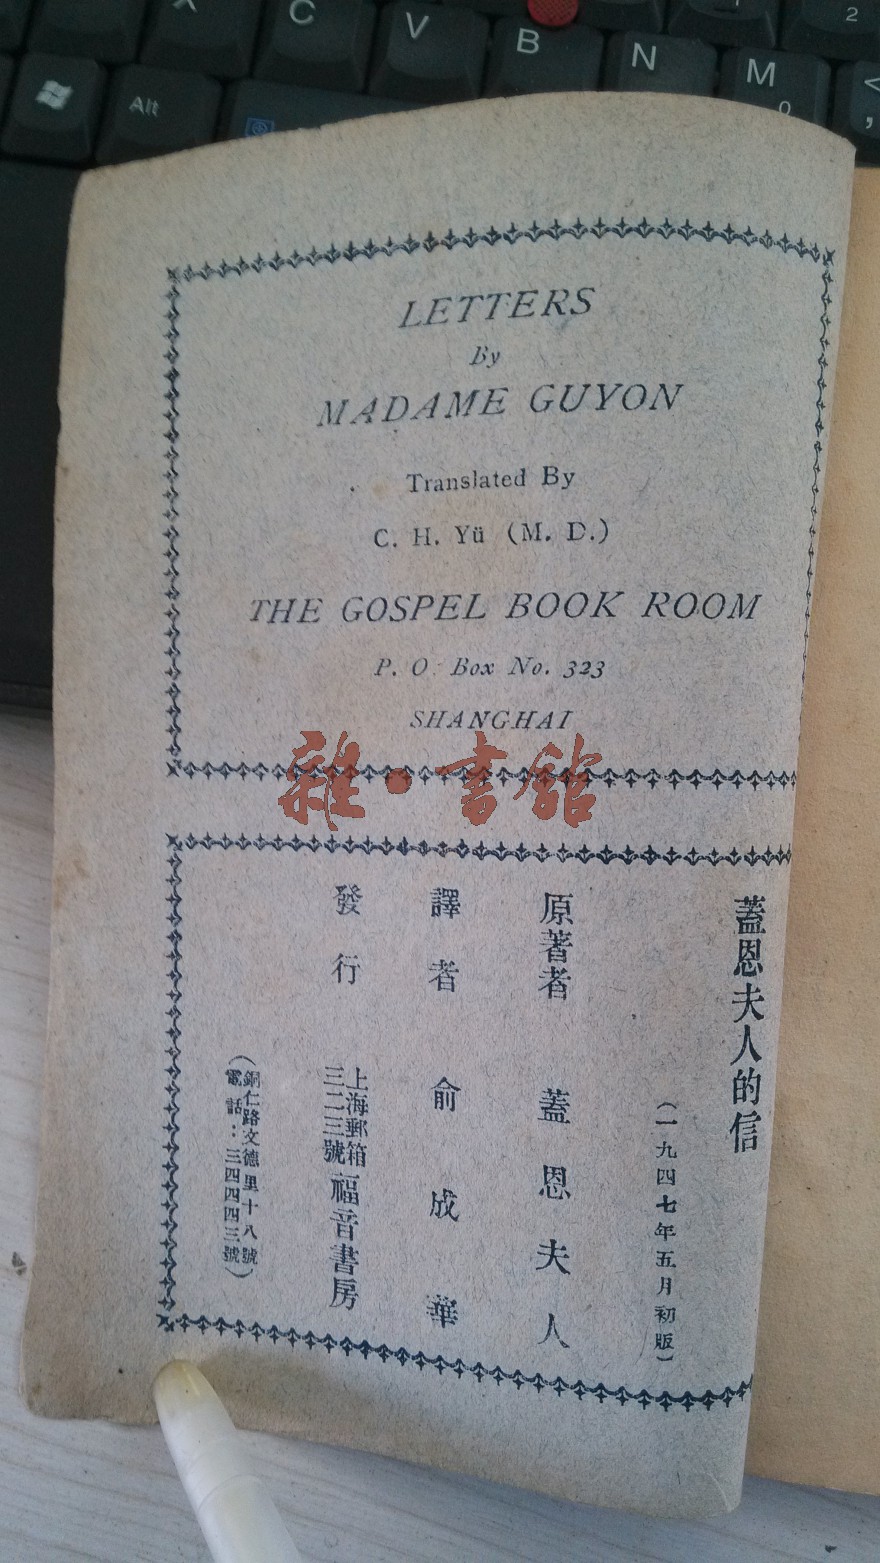 X
C
V
B
N
M
0
2
<
,
Alt
LETTERS
By
MADAME GUYON
Translated By
C. H. Yü (M. D.)
THE GOSPEL BOOK ROOM
P. O. Box No. 323
SHANGHAI
雜·書館
蓋恩夫人的信
(一九四七年五月初版)
原著者 蓋恩夫人
譯者 俞成華
發行 上海郵箱三二三號 福音書房
(銅仁路文德里十八號
電話:三四四四三號)